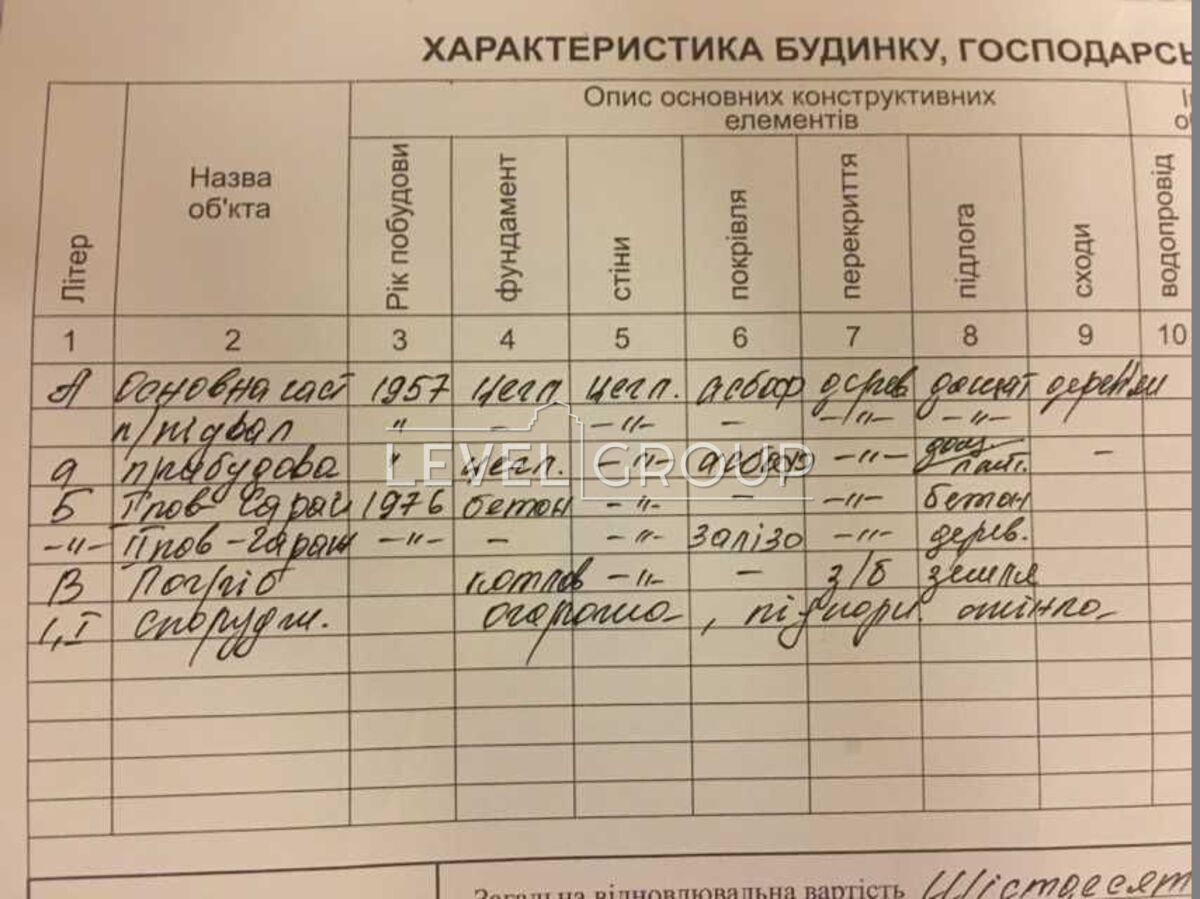 ХАРАКТЕРИСТИКА БУДИНКУ, ГОСПОДАРСЬ
Опис основних конструктивних
елементів
Літер
Назва
об'кта
Рік побудови
фундамент
стіни
покрівля
перекриття
підлога
сходи
водопровід
1 2 3 4 5 6 7 8 9 10
А Основна част 1957 цегл цегл. асбоф дерев дощат дерев'ян
п/підвал " - -"- - -"- -"-
а прибудова " цегл. -"- асбоф -"- дощ/паст. -
Б І пов Гараж 1976 бетон -"- - -"- бетон
-"- ІІ пов-Гараж -"- - -"- залізо -"- дерев.
В Погріб котлов -"- - з/б земля
1,І споруди. огорожа, підпори. стінка
LEVEL GROUP
Загальна відновлювальна вартість Шістдесят